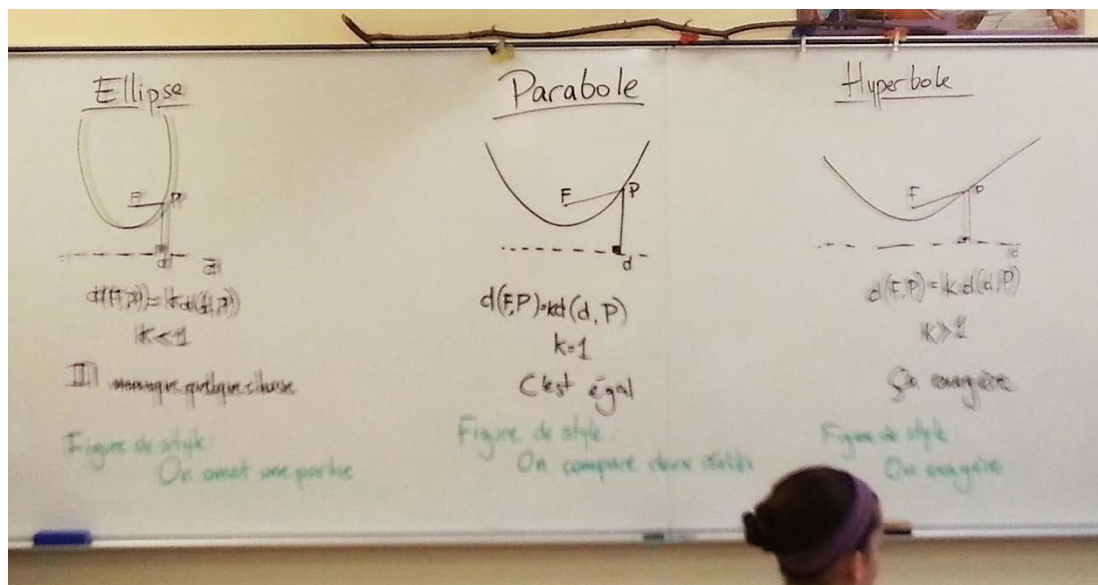 Ellipse
F P
d
d(F,P)=kd(d,P)
k<1
Il manque quelque chose
Figure de style:
On omet une partie
Parabole
F P
d
d(F,P)=kd(d,P)
k=1
C'est égal
Figure de style:
On compare deux réalités
Hyperbole
F P
d
d(F,P)=kd(d,P)
k>1
Ça exagère
Figure de style:
On exagère